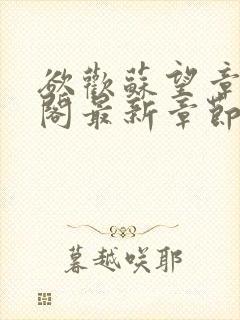 欲歡蘇望章
閣最新章節
暮越咲耶